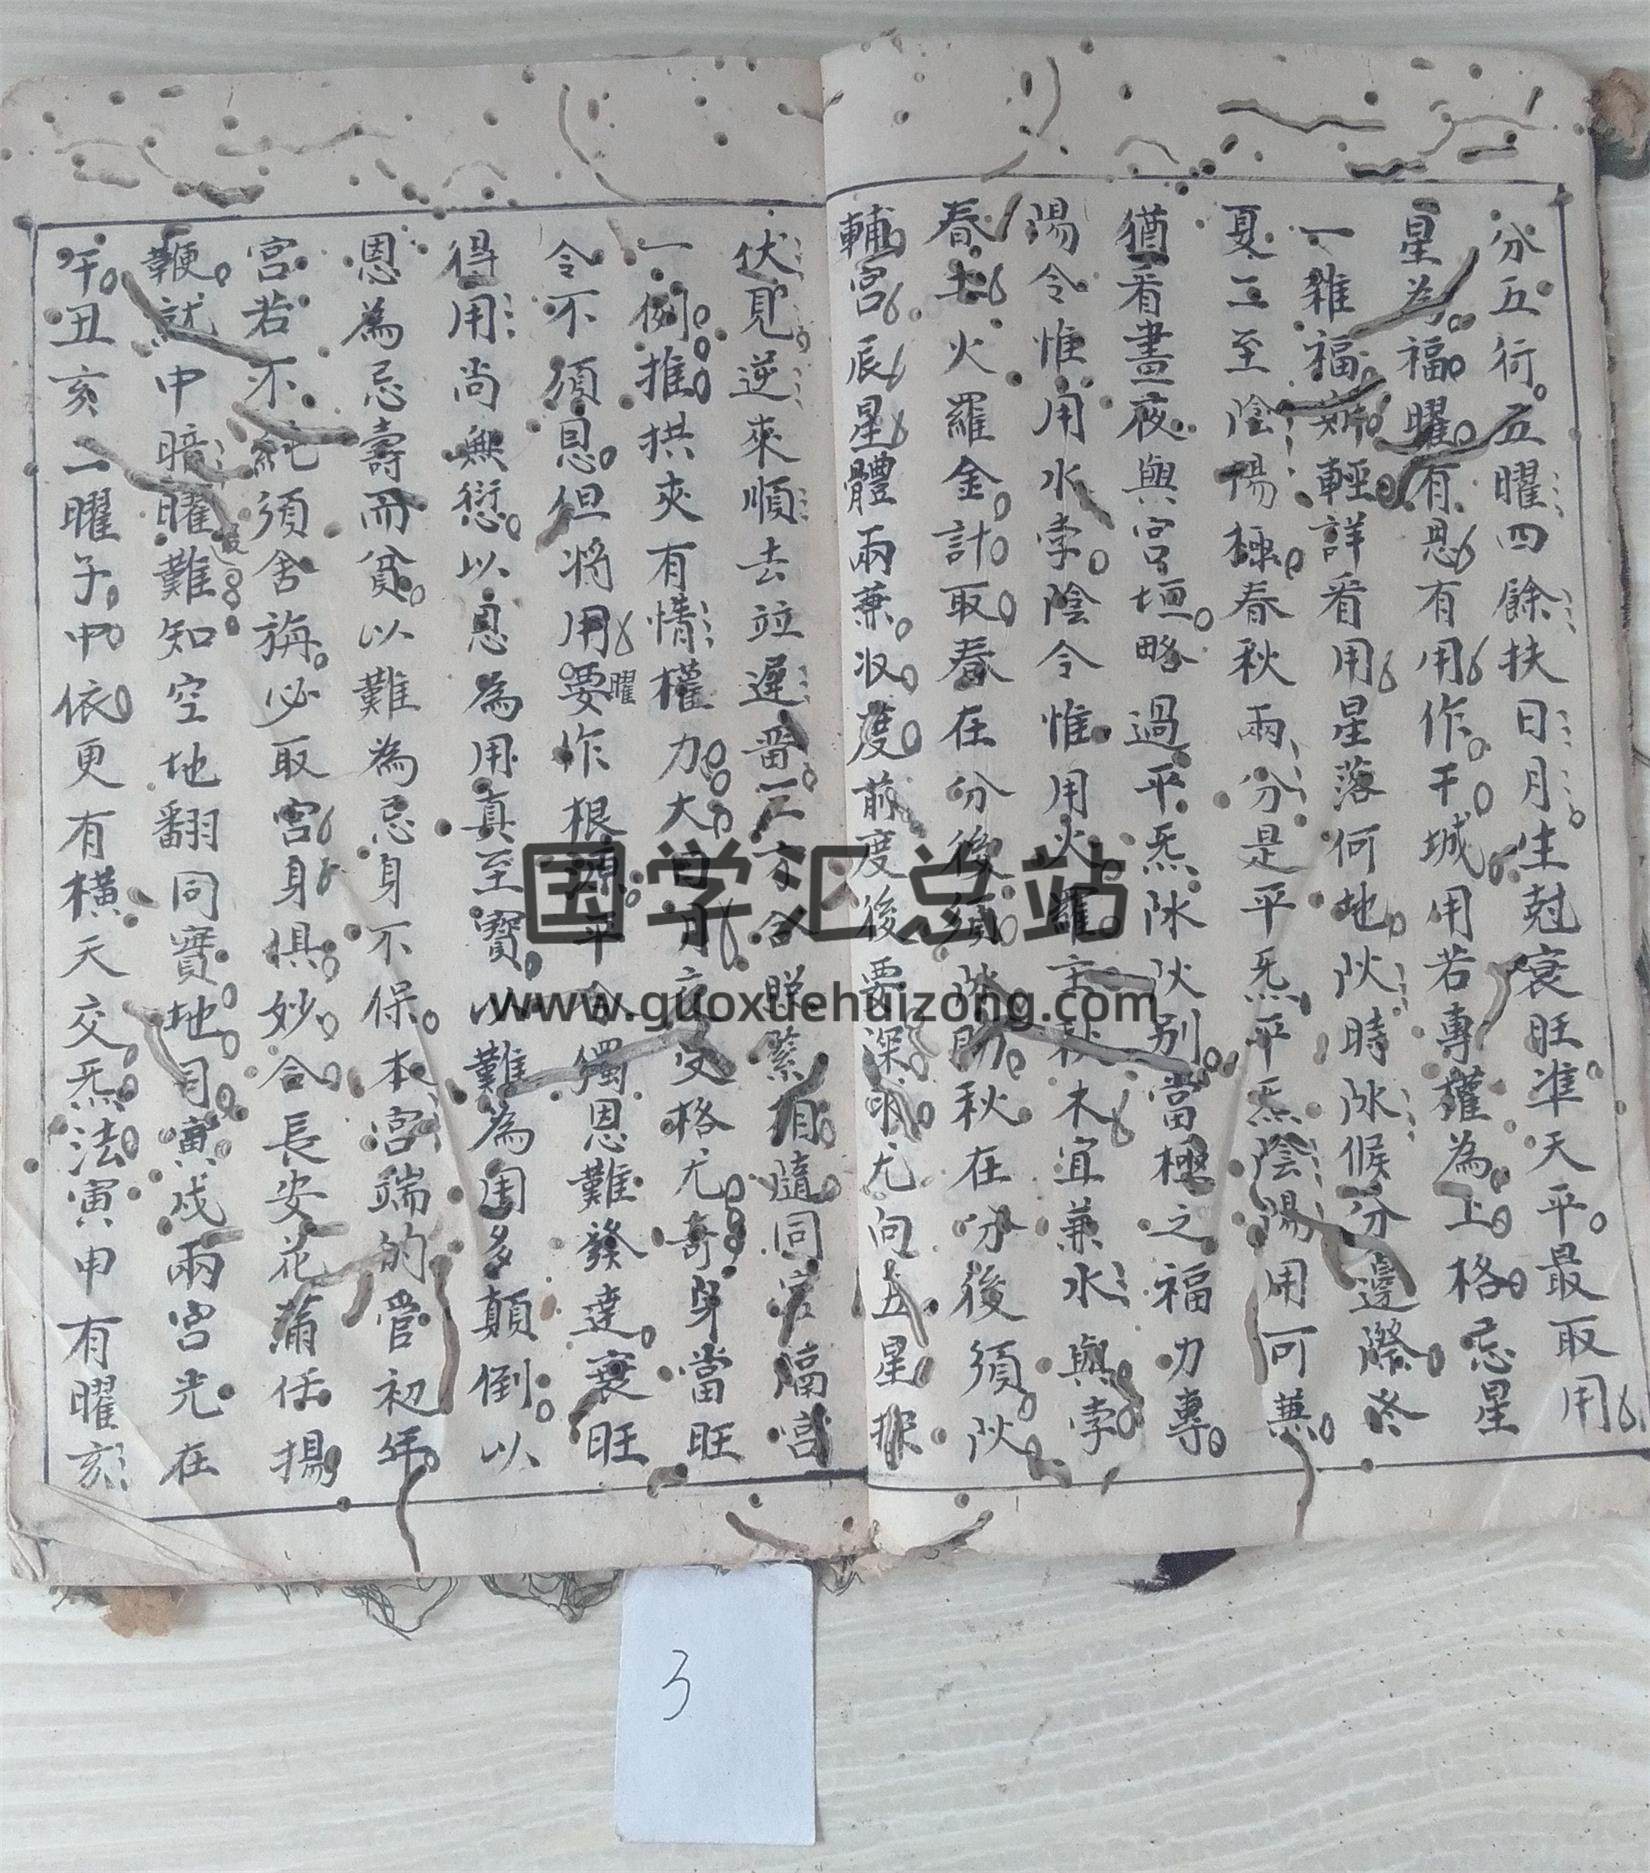 分五行五曜四餘扶日月生尅衰旺准天平最取用
星為福曜有恩有用作干城用若專權為上格忘星
一雜福輕詳看用星落何地炏時炏候分邊際冬
夏二至陰陽極春秋兩分是平炁平炁陰陽用可兼
猶看晝夜與宮垣略過平炁炏炏别當極之福力專
陽令惟用水孛陰令惟用火羅主秋木宜兼水與孛
春土火羅金計取春在分後須陽秋在分後須炏
輔宮辰星體兩兼収度前度後要深求尤向五星探
伏見逆來順去竝遲畱三方合照緊相隨同宮隔宮
一例推拱夾有情權力大日月交格尤奇身當旺
令不須恩但將用要作根源平令獨恩難發達衰旺
曜
得用尚無愆以恩為用真至寶以難為用多顛倒以
恩為忌壽而貧以難為忌身不保本宮端的管初年
宮若不純須舍旃必取宮身俱妙合長安花蒲任揚
鞭就中暗曜難知空地翻同實地同寅戌兩宮光在
午丑亥二曜子中依更有橫天交炁法寅申有曜亥
国学汇总站
www.guoxuehuizong.com
3